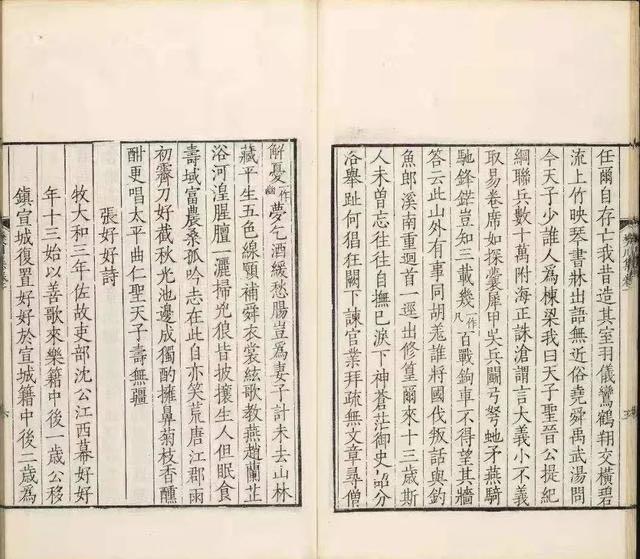 任爾自存亡我昔造其室羽儀鸞鶴翔交橫碧
流上竹映琴書牀出語無近俗堯舜禹武湯問
今天子少誰人爲棟梁我曰天子聖晉公提紀
綱聯兵數十萬附海正誅滄謂言大義小不義
取易卷席如探囊犀甲吳兵鬭弓弩虵矛燕騎
馳鋒鋩豈知三載幾一作百戰鉤車不得望其牆
答云此山外有事同胡羌誰將國伐叛話與釣
魚郎溪南重迴首一逕出修篁爾來十三歲斯
人未曾忘往往自撫已淚下神蒼茫御史詔分
洛舉趾何猖狂闕下諫官業拜疏無文章尋僧
解憂一作幽夢乞酒緩愁腸豈爲妻子計未去山林
藏平生五色線願補舜衣裳絃歌教燕趙蘭芷
浴河湟腥膻一灑掃兇狼皆披攘生人但眠食
壽域富農桑孤吟志在此自亦笑荒唐江郡雨
初霽刀好截秋光池邊成獨酌擁鼻菊枝香醺
酣更唱太平曲仁聖天子壽無疆
張好好詩
牧大和三年佐故吏部沈公江西幕好好
年十三始以善歌來樂籍中後一歲公移
鎮宣城復置好好於宣城籍中後二歲爲